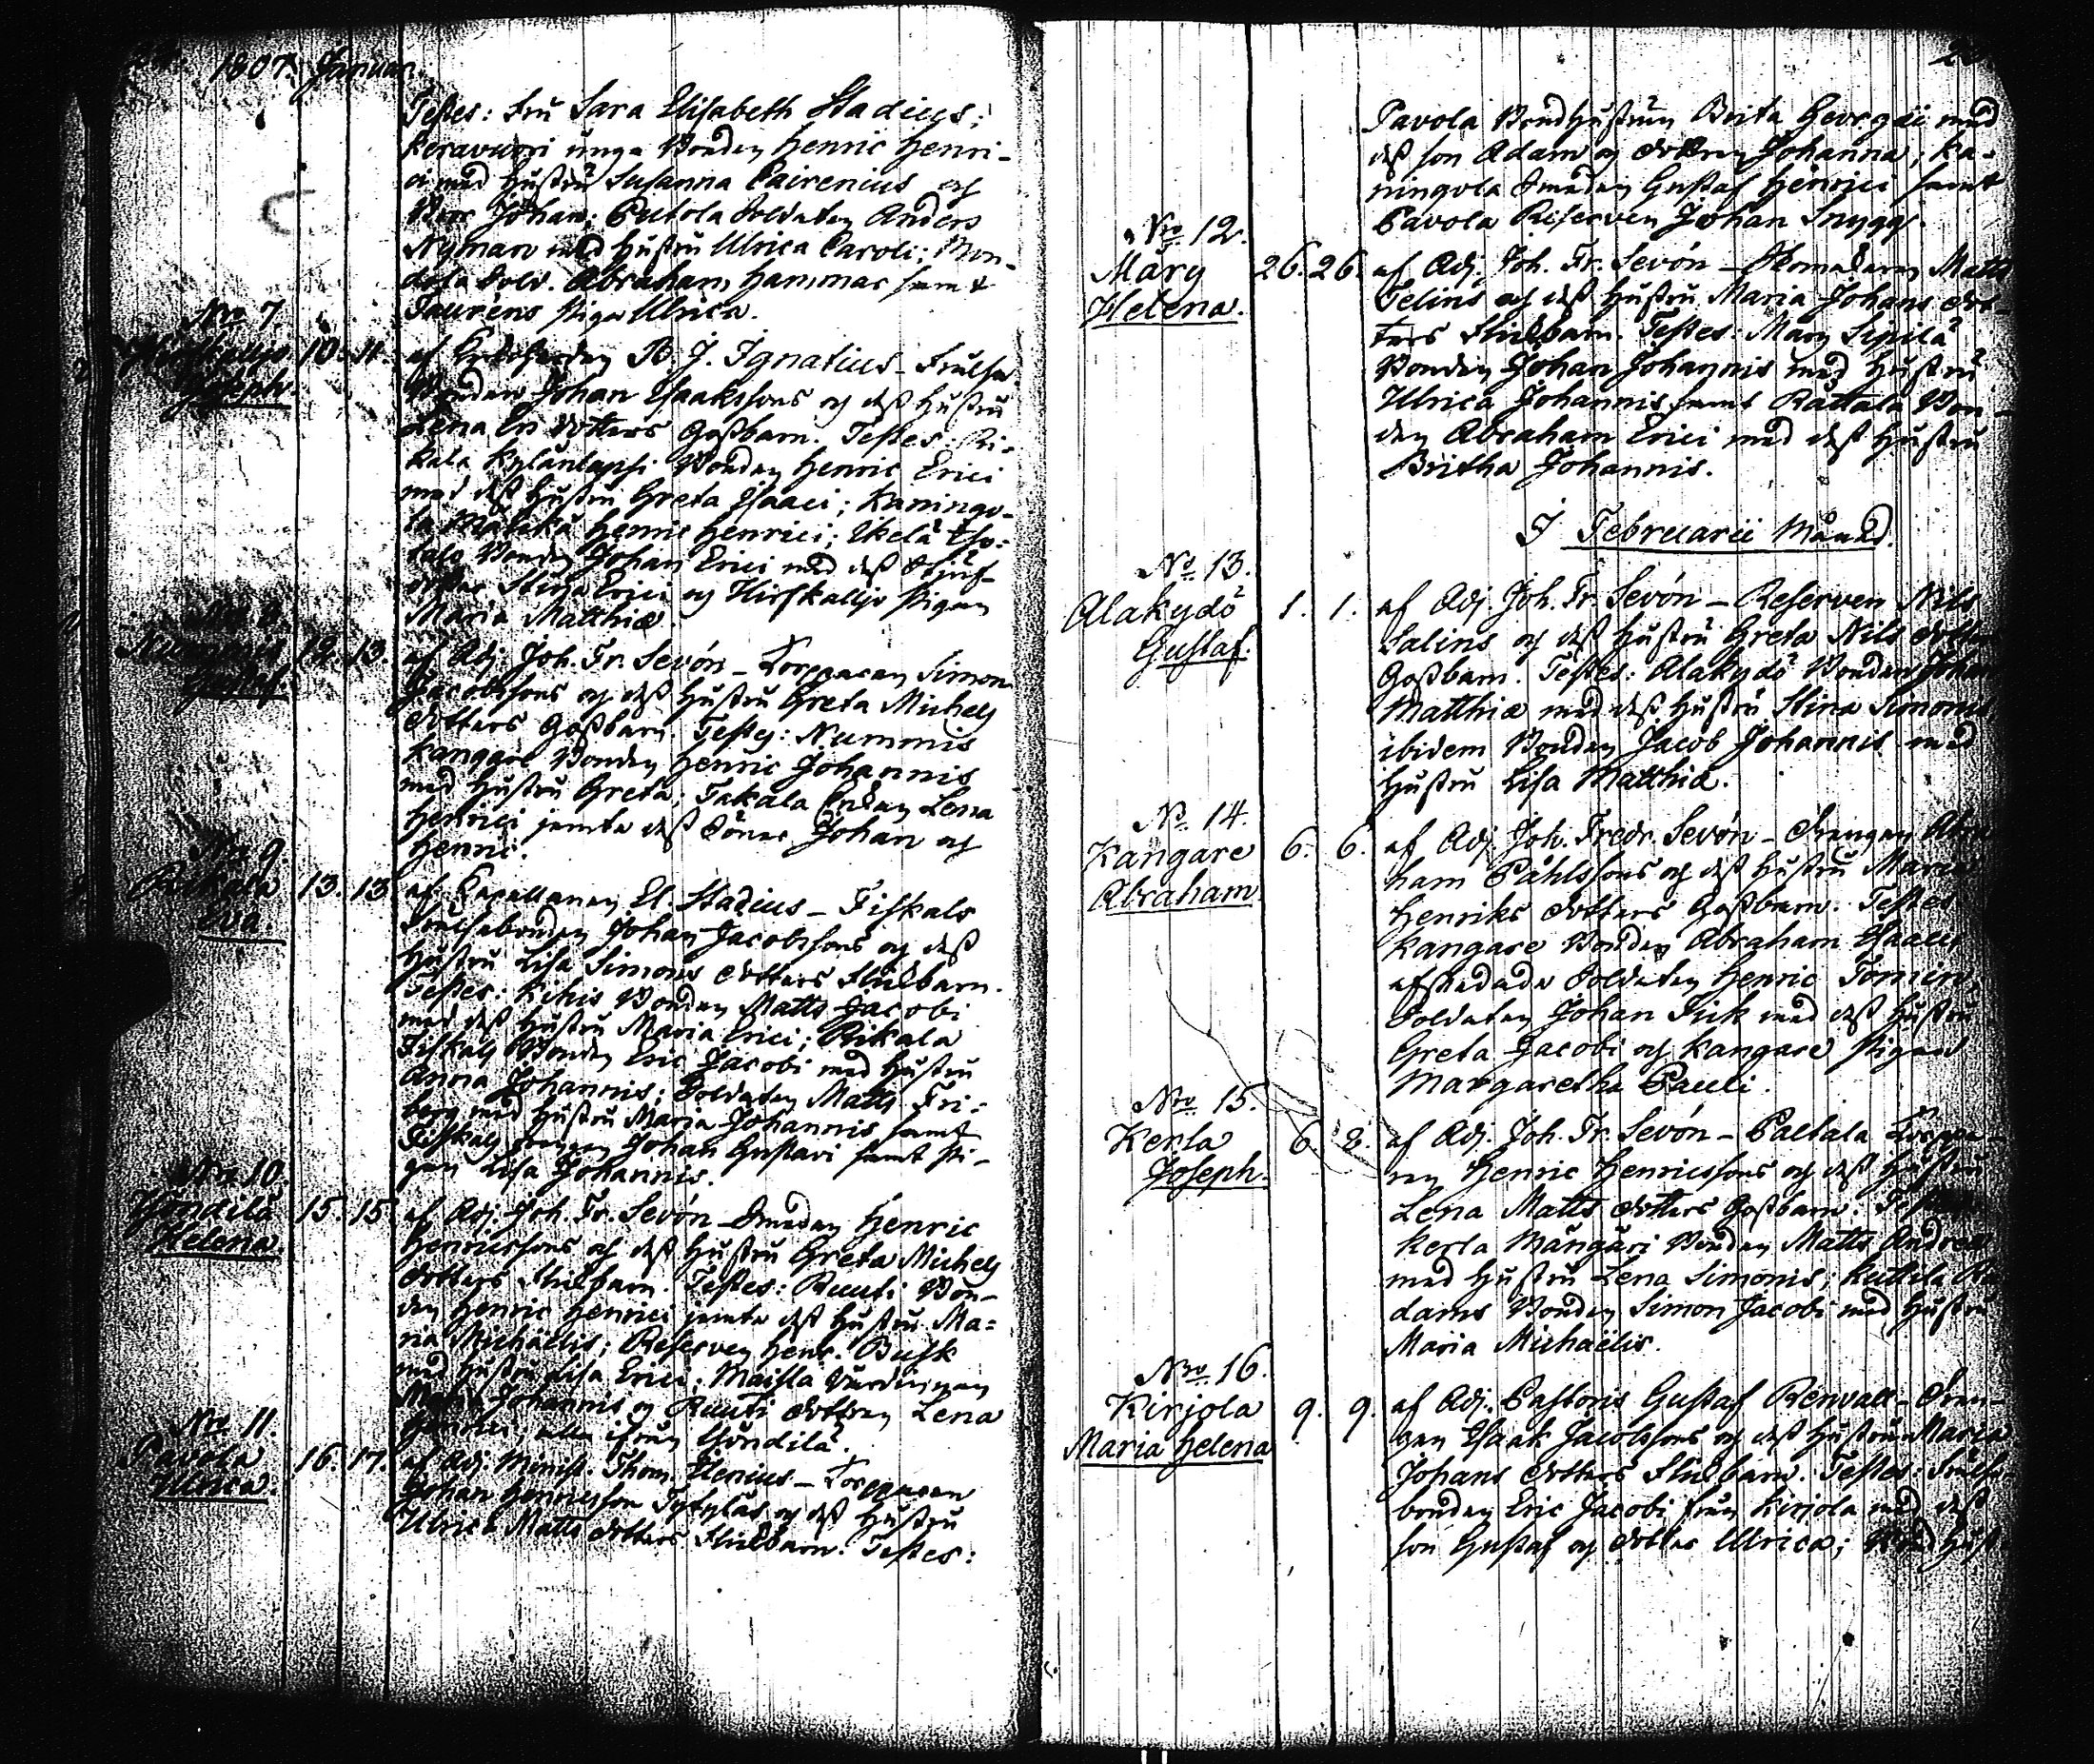 1807. Januar.
Testes: Fru Sara Elisabeth Stadius;
Keravuori unga Bonden Henric Henri-
ci med Hustru Susanna Cairenius och
Bror Johan; Puttola Soldaten Anders
Nyman med Hustru Ulrica Caroli; Mon-
dola Sold. Abraham Hammar samt
Taurèns Pigan Ulrica.
No 7.
Hirskallio 10. 11. af Kyrkoherden B. J. Ignatius – Frälse
Joseph. Bonden Johan Isaakssons och dess Hustru
Lena Ers dotters Gossbarn. Testes: Ri-
kala Kylänlapsi Bonden Henric Erici
med dess Hustru Greta Isaaci; Kaningo-
la Henric Henrici; Ikelä Iso-
talo Bonden Johan Erici med dess
Stina Erici och Hirskallio Pigan
Maria Matthiæ.
No 8.
Nummis 12. 13. af Adj. Joh. Fr. Sevón – Torpparen Simon
Gustaf. Jacobssons och dess Hustru Greta Michels
dotters Gossbarn. Testes: Nummis
Kangare Bonden Henric Johannis
med Hustru Greta; Takala Enkan Lena
Henrici jemte dess Söner Johan och
Henric.
No 9.
Rikala 13. 13 af Capellanen El. Stadius – Fiskals
Eva. Frälsebonden Johan Jacobssons och dess
Hustru Lisa Simons dotters Flickbarn.
Testes: Kihis Bonden Matts Jacobi
med dess Hustru Maria Erici; Rikala
Fiskals Bonden Eric Jacobi med Hustru
Anna Johannis; Soldaten Matts Fri-
berg med Hustru Maria Johannis samt
Fiskals Drengen Johan Gustavi samt Pi-
gan Lisa Johannis.
No 10.
Yöndilä 15. 15 af Adj. Joh. Fr. Sevón – Smeden Henric
Helena. Henricssons och dess Hustru Greta Michels
dotters Flickbarn. Testes: Ruuti Bon-
den Henric Henrici jemte dess Hustru Ma-
ria Michaëlis; Reserven Henr. Busk
med Hustru Lisa Erici; Maisla
Johannis och Ruuti dottren Lena
Henrici; alla ifrån Yöndilä.
No 11.
Pavola 16. 17. af Adj. Minist. Thom. – Torpparen
Ulrica. Johan Henricsson och dess Hustru
Ulrica Matts dotters Flickbarn. Testes:
Pavola Bondhustrun Brita Georgii med
dess son Adam och dottren Johanna; Ka-
ningola Smeden Gustaf Henrici samt
Pavola Reserven Johan Snygg.
No 12.
Märy 26. 26. af Adj. Joh. Fr. Sevón – Skomakaren Matts
Helena. Felins och dess Hustru Maria Johans dot-
ters Flickbarn. Testes: Märy Sipilä
Bonden Johan Johannis med Hustru
Ulrica Johannis samt Rättälä Bon-
den Abraham Erici med dess Hustru
Britha Johannis.
I Februarii Månad.
No 13.
Alakydö 1. 1. af Adj. Joh. Fr. Sevón – Reserven Nils
Gustaf. Salins och dess Hustru Greta Nils dotters
Gossbarn. Testes: Alakydö Bonden Johan
Matthiæ med dess Hustru Stina Simonis
ibidem Bonden Jacob Johannis med
Hustru Lisa Matthiæ.
No 14.
Kangare 6. 6. af Adj. Joh. Fredr. Sevón – Drengen Abra-
Abraham. ham Påhlssons och dess Hustru Maria
Henriks dotters Gossbarn. Testes
Kangare Bonden Abraham Isaaci
afskedade Soldaten Henric
Soldaten Johan Sick med dess Hustru
Greta Jacobi och Kangare Pigan
Margaretha Pauli.
No 15.
Kerla 6. 8. af Adj. Joh. Fr. Sevón – Paltala Torppa-
Joseph. ren Henric Henricssons och dess Hustru
Lena Matts dotters Gossbarn. Testes
Kerla Mängäri Bonden Matts Andreæ
med Hustru Lena Simonis; Kuttila
dams Bonden Simon Jacobi med Hustru
Maria Michaëlis.
No 16.
Kirjola 9. 9. af Adj. Pastoris Gustaf Renvall – Dren-
Maria Helena gen Isaak Jacobssons och dess Hustru Maria
Johans dotters Flickbarn. Testes: Frälse
bonden Eric Jacobi från Kirjola med dess
son Gustaf och dotter Ulrica; Bondhust